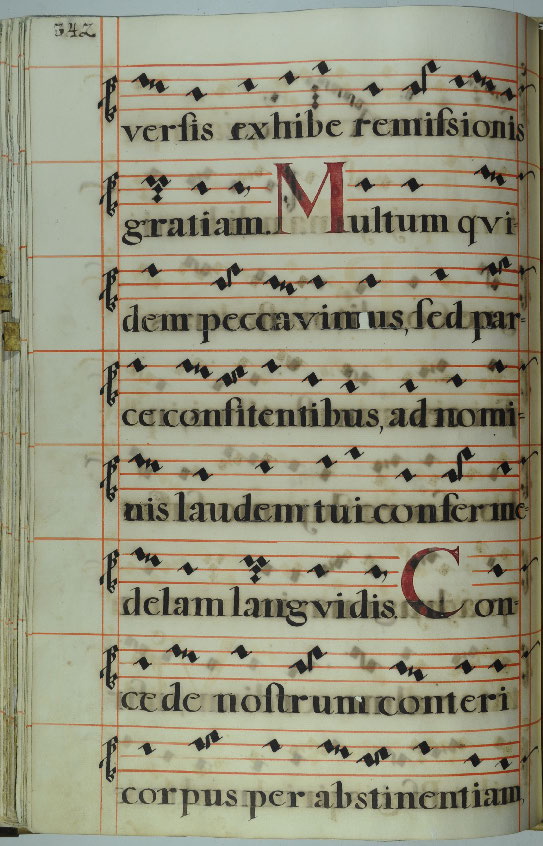 342
verſis exhibe remiſsionis
gratiam. Multum qvi-
dem peccavimus, ſed par-
ce conſitentibus, ad nomi-
nis laudem tui confer me-
delam langvidis. Con-
cede noſtrum conteri
corpus per abstinentiam,